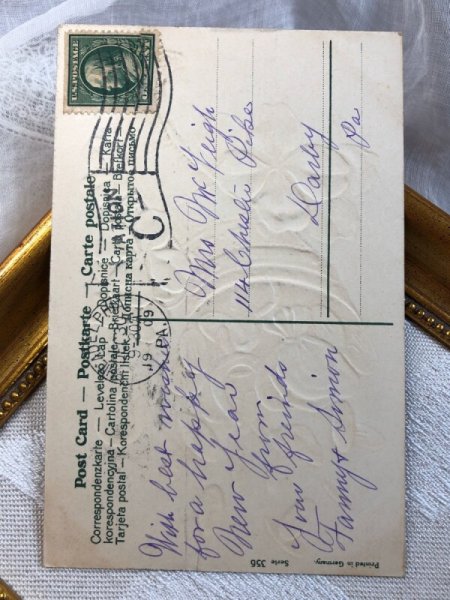 Post Card — Postkarte — Carte postale
Correspondenzkarte — Levelező Lap — Dopisnice — Dopisnica — Karta
korespondencyjna — Cartolina postale — Briefkaart — Carta postal — Brefkort —
Tarjeta postal — Korespondenční lístek — Дописна карта — Открытое письмо
U.S. POSTAGE
PA.
09
C
With best wishes
for a happy
New Year
from
Your freinds
Fanny & Simon
Mrs McLeigh
114 Pike
Darby
Pa
Serie 356
Printed in Germany.